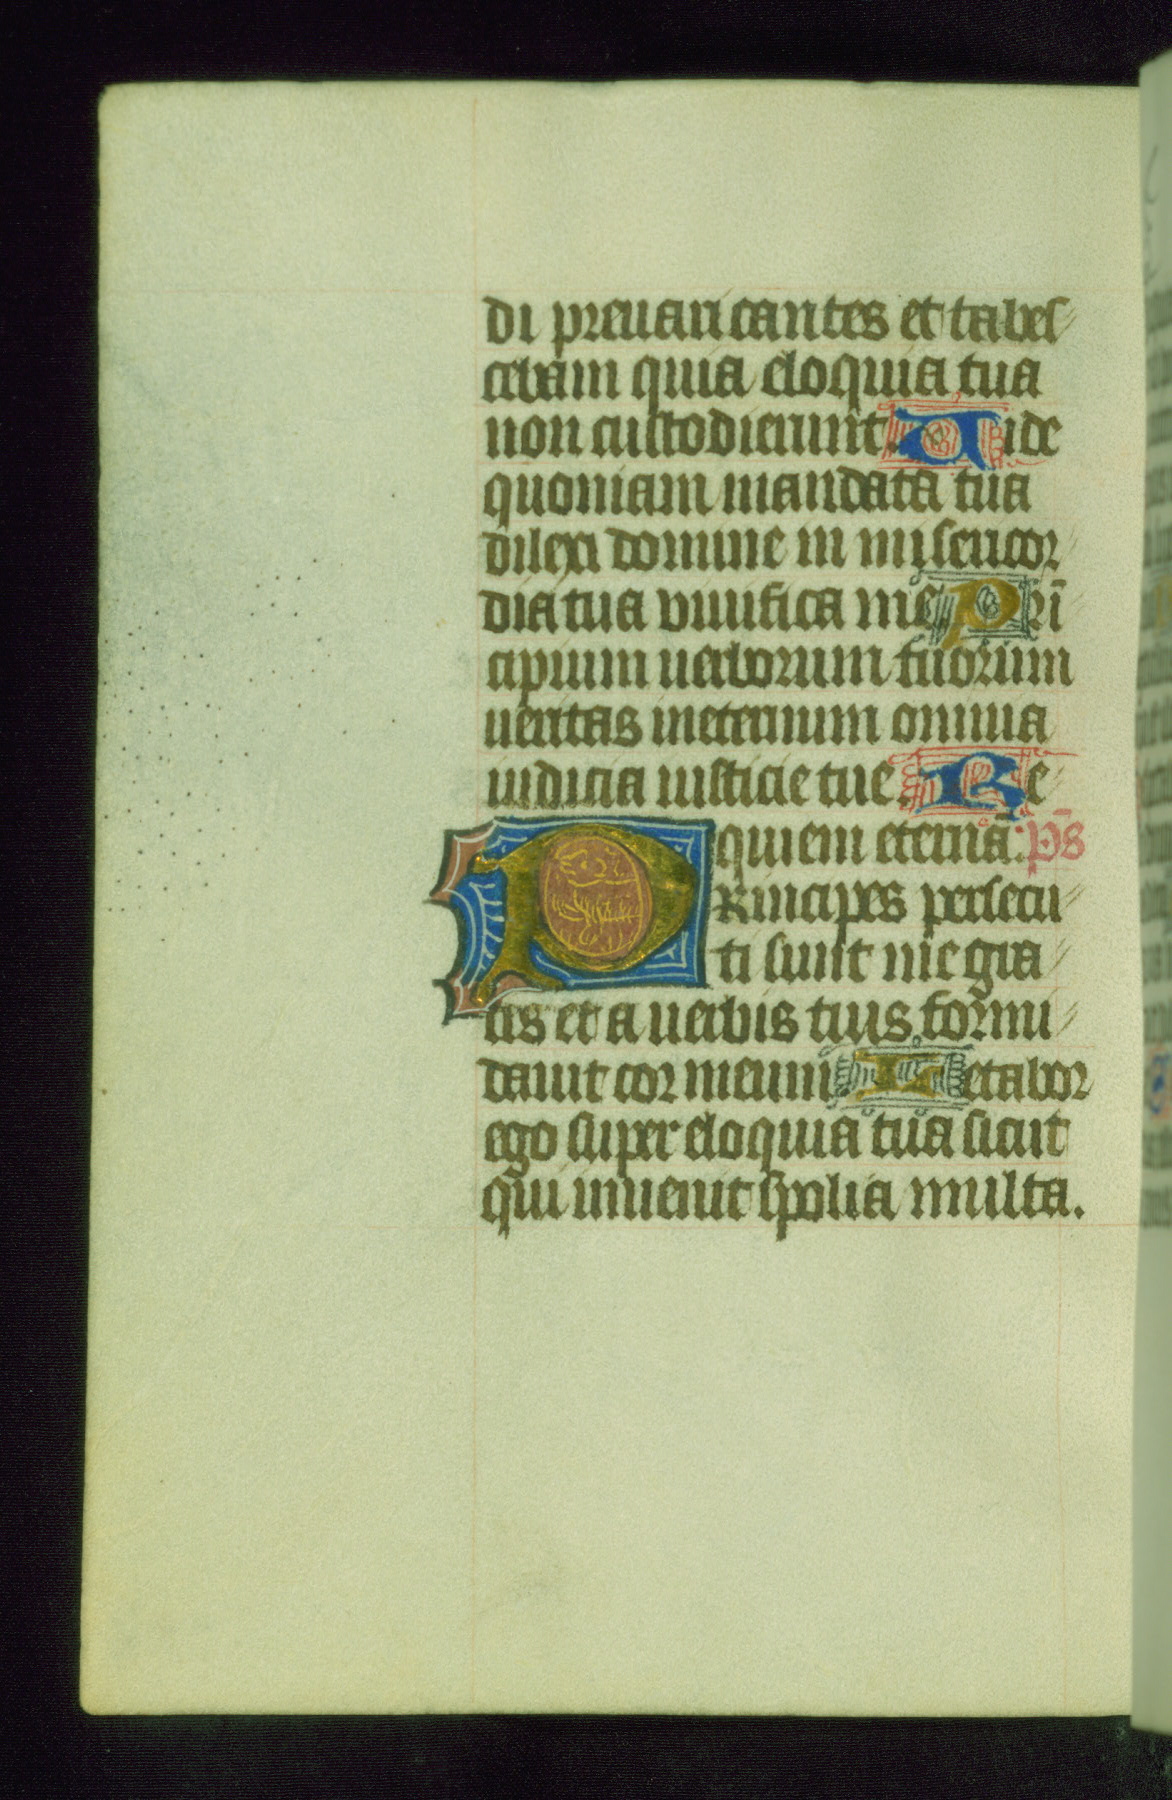 di preuaricantes et tabes
cebam quia eloquia tua
non custodierunt. Uide
quoniam mandata tua
dilexi domine in misericor
dia tua viuifica me Pri
cipium uerborum tuorum
ueritas ineternum omnia
iudicia iusticie tue. Re
quiem eternā: Ps̄
PRincipes persecu
ti sunt me gra
tis et a uerbis tuis formi
dauit cor meum. Letabor
ego super eloquia tua sicut
qui inuenit spolia multa.